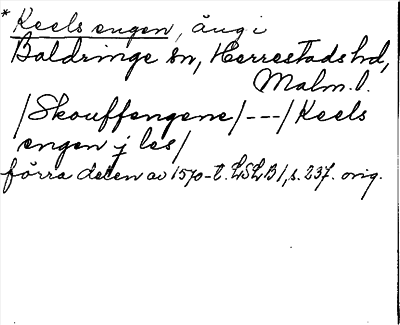 * Keels engen, äng i
Baldringe sn, Herrestads hd,
Malm. l.
/Skouffengene/---/Keels
engen j les/
förra delen av 1570-t. LSLB 1, s. 237. orig.